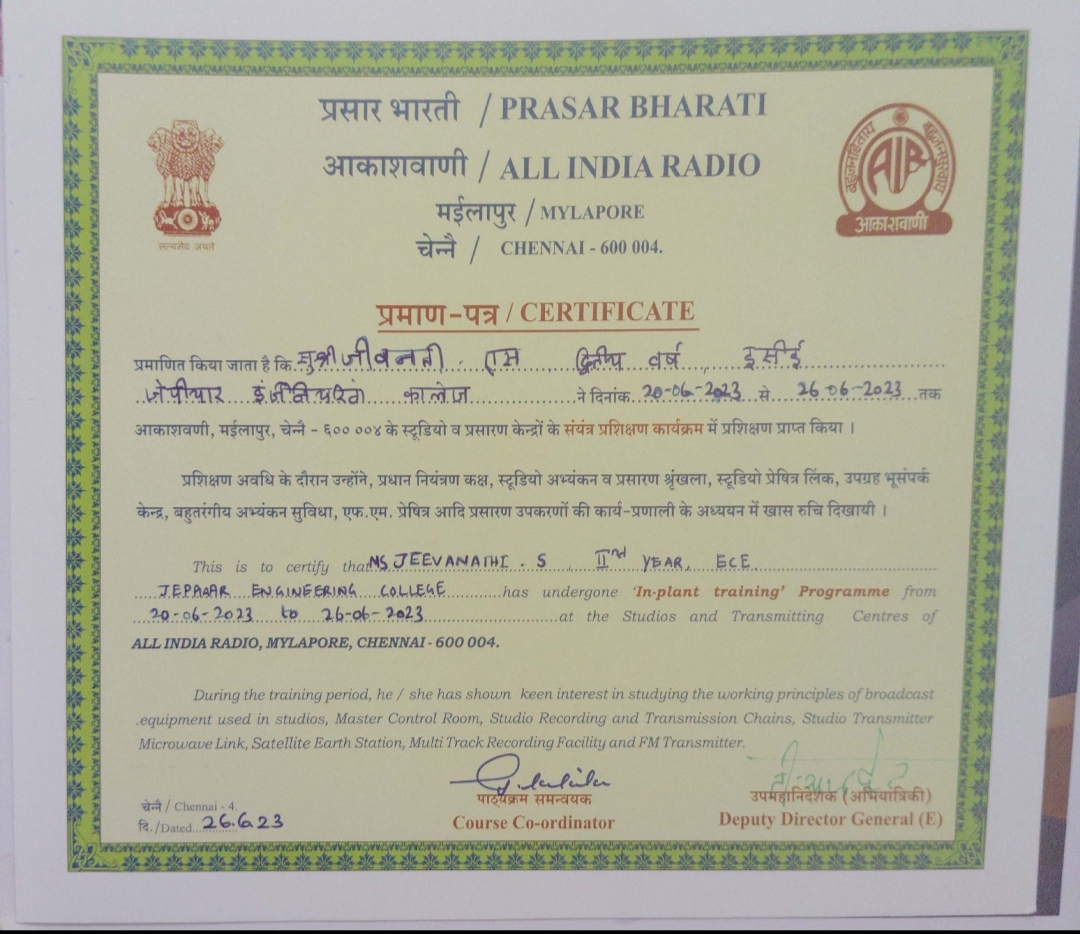 प्रसार भारती / PRASAR BHARATI
आकाशवाणी / ALL INDIA RADIO
मईलापुर / MYLAPORE
चेन्नै / CHENNAI - 600 004.
सत्यमेव जयते
बहुजनहिताय बहुजनसुखाय
AIR
आकाशवाणी
प्रमाण-पत्र / CERTIFICATE
प्रमाणित किया जाता है कि सुश्री जीवनती . एस द्वितीय वर्ष, ईसीई
जेपीयार इंजीनियरिंग कालेज ने दिनांक 20-06-2023 से 26 06-2023 तक
आकाशवणी, मईलापुर, चेन्नै - ६०० ००४ के स्टूडियो व प्रसारण केन्द्रों के संयंत्र प्रशिक्षण कार्यक्रम में प्रशिक्षण प्राप्त किया ।
प्रशिक्षण अवधि के दौरान उन्होंने, प्रधान नियंत्रण कक्ष, स्टूडियो अभ्यंकन व प्रसारण श्रृंखला, स्टूडियो प्रेषित्र लिंक, उपग्रह भूसंपर्क
केन्द्र, बहुतरंगीय अभ्यंकन सुविधा, एफ.एम. प्रेषित्र आदि प्रसारण उपकरणों की कार्य-प्रणाली के अध्ययन में खास रुचि दिखायी ।
This is to certify that MS JEEVANATHI . S , IInd YEAR, ECE
JEPAAR ENGINEERING COLLEGE has undergone 'In-plant training' Programme from
20-06-2023 to 26-06-2023 at the Studios and Transmitting Centres of
ALL INDIA RADIO, MYLAPORE, CHENNAI - 600 004.
During the training period, he / she has shown keen interest in studying the working principles of broadcast
.equipment used in studios, Master Control Room, Studio Recording and Transmission Chains, Studio Transmitter
Microwave Link, Satellite Earth Station, Multi Track Recording Facility and FM Transmitter.
चेन्नै / Chennai - 4.
दि./Dated 26.6.23
पाठ्यक्रम समन्वयक
Course Co-ordinator
उपमहानिदेशक (अभियांत्रिकी)
Deputy Director General (E)